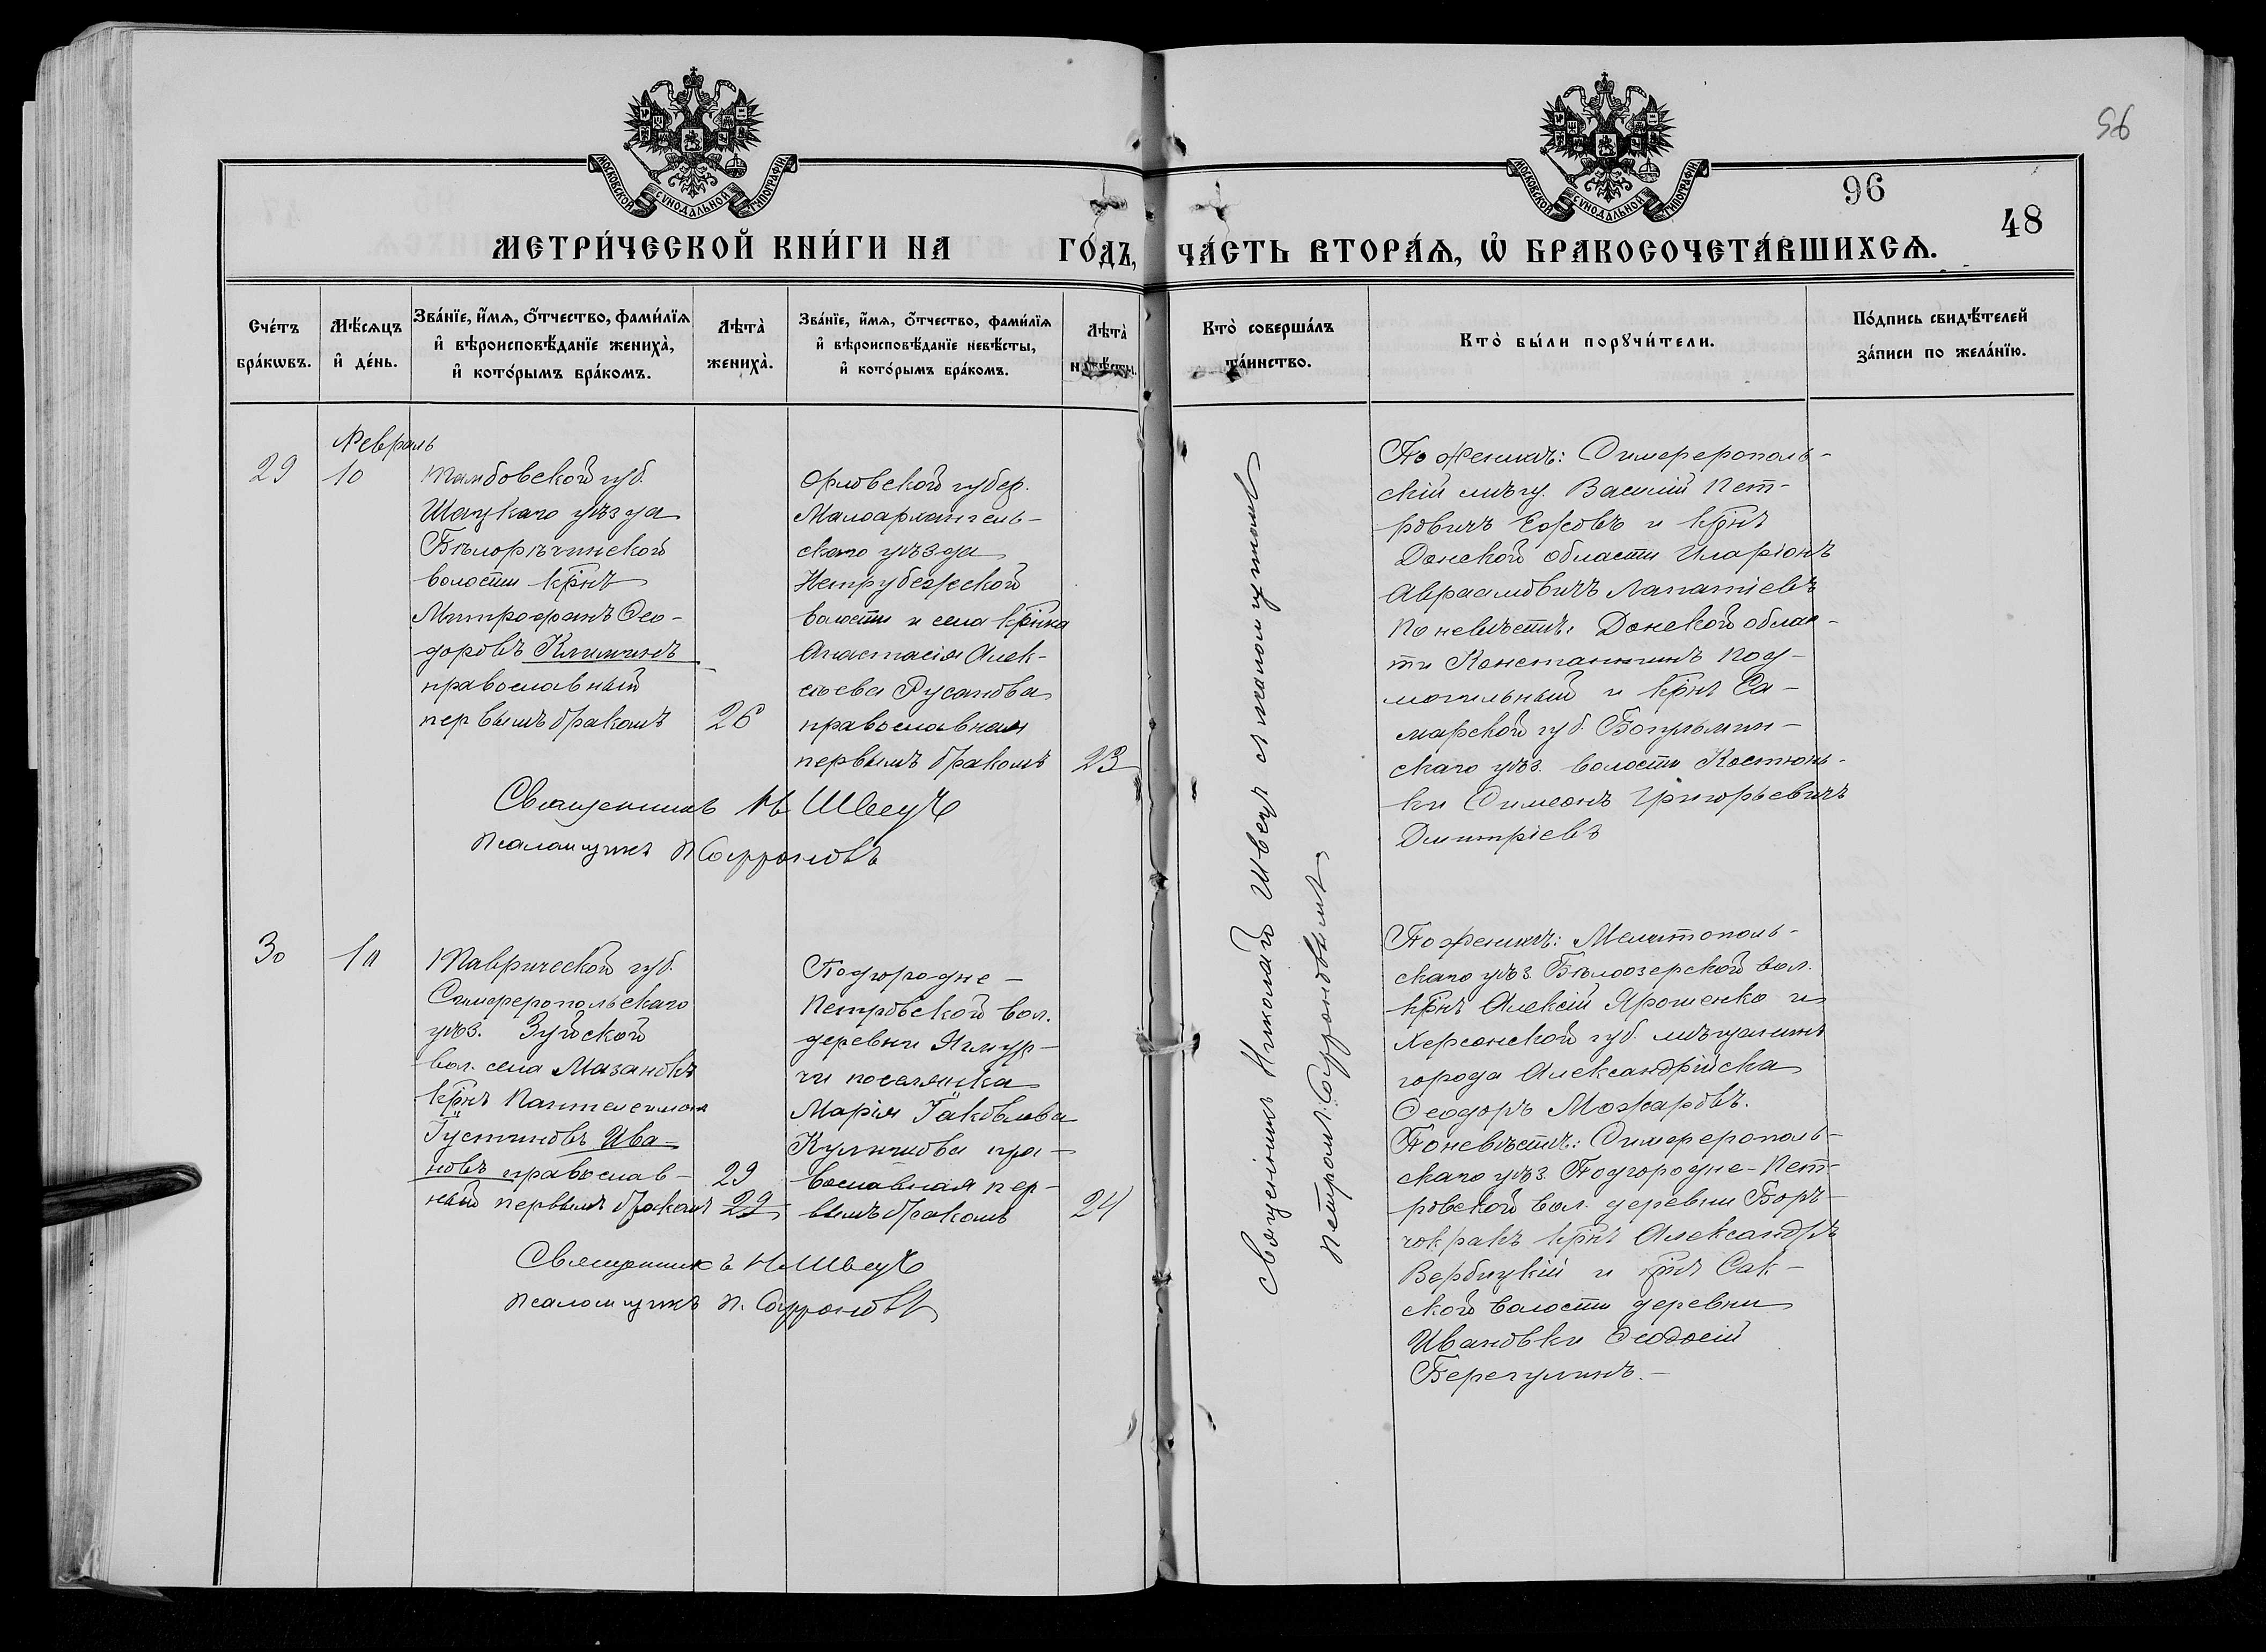 96
МОСКОВСКОЙ СѴНОДАЛЬНОЙ ТИПОГРАФІИ.
МОСКОВСКОЙ СѴНОДАЛЬНОЙ ТИПОГРАФІИ.
96
48
МЕТРИ́ЧЕСКОЙ КНИ́ГИ НА ГО́ДЪ, ЧА́СТЬ ВТОРА́Ѧ, Ѡ҆ БРАКОСОЧЕТА́ВШИХСѦ.
Сче́тъ
бра́кѡвъ.
Мѣ́сѧцъ
и҆ де́нь.
Зва́нїе, и҆́мѧ, ѻ҆́тчество, фами́лїѧ
и҆ вѣроисповѣ́данїе жениха̀,
и҆ кото́рымъ бра́комъ.
Лѣта̀
жениха̀.
Зва́нїе, и҆́мѧ, ѻ҆́тчество, фами́лїѧ
и҆ вѣроисповѣ́данїе невѣ́сты,
и҆ кото́рымъ бра́комъ.
Лѣта̀
невѣ́сты.
Кто̀ соверша́лъ
та́инство.
Кто̀ бы́ли порꙋчи́тели.
По́дпись свидѣ́телей
за́писи по жела́нїю.
Февраль
29
10
Тамбовской губ.
Шацкаго уѣзда
Бѣлорѣчинской
волости крнъ
Митрофанъ Ѳео-
доровъ Климкинъ
православный
первымъ бракомъ
26
Орловской губер.
Малоархангель-
скаго уѣзда
Нетрубежской
волости и села крнка
Анастасія Алек-
сѣева Русанова
православная
первымъ бракомъ
23
Священникъ Н Швецъ
Псаломщикъ П Софроновъ
Священникъ Николай Швецъ съ псаломщикомъ
Петромъ Софроновымъ.
По женихѣ: Симферополь-
скій мѣщ. Василій Пет-
ровичъ Ежовъ и крнъ
Донской области Иларіонъ
Авраамовичъ Лапатіевъ
По невѣстѣ: Донской облас-
ти Константинъ Под-
могильный и крнъ Са-
марской губ. Богульмин-
скаго уѣз. волости Костюнь-
ки Симеонъ Григорьевичъ
Дмитріевъ
30
10
Таврической губ.
Симферопольскаго
уѣз. Зуйской
вол. села Мазановки
крнъ Пантелеимонъ
Іустиновъ Ива-
новъ православ-
ный первымъ бракомъ
29
29
Подгородне-
Петровской вол.
деревни Ягмур-
чи поселянка
Марія Іаковлева
Куличкова пра-
вославная пер-
вымъ бракомъ
24
Священникъ Н Швецъ
Псаломщикъ П. Софроновъ
По женихѣ: Мелитополь-
скаго уѣз. Бѣлозерской вол.
крнъ Алексій Ярошенко и
Херсонской губ. мѣщанинъ
города Александрійска
ѲеодоръМожаровъ.
По невѣстѣ: Симферополь-
скаго уѣз. Подгородне-Пет-
ровской вол. деревни Боръ-
чокракъ крнъ Александръ
Вербицкій и крнъ Сак-
ской волости деревни
Ивановки Ѳеодосій
Берегулинъ.-